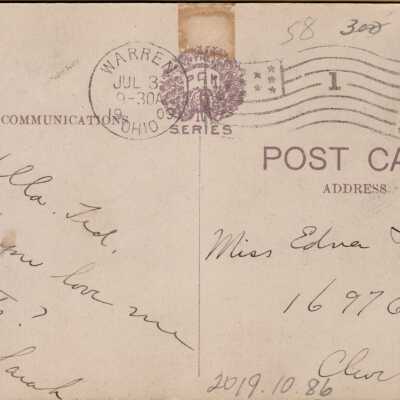 58 300
WARREN
JUL 3
9-30A
1909
OHIO
1
PCK
SERIES
COMMUNICATIONS
POST CA
ADDRESS
lla Ted.
you love me
?
Sarah
Miss Edna
1697
Clev
2019.10.86